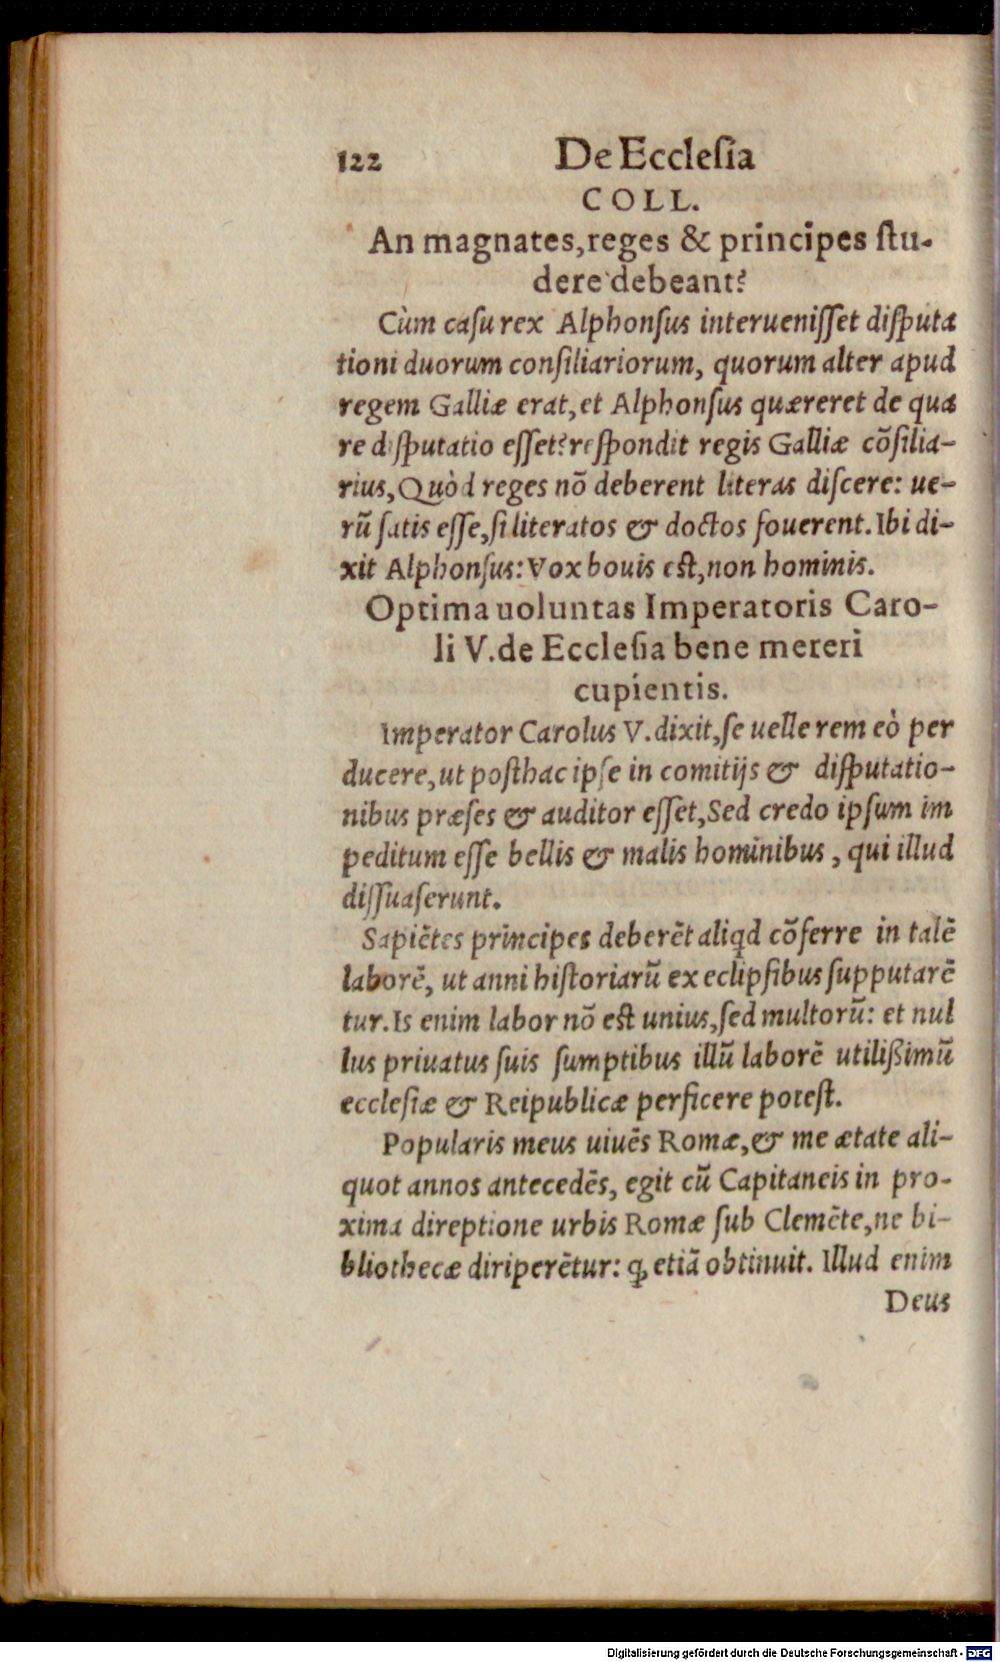 122 De Ecclesia
COLL.
An magnates, reges & principes stu-
dere debeant?
Cùm casu rex Alphonsus interuenisset disputa
tioni duorum consiliariorum, quorum alter apud
regem Galliæ erat, et Alphonsus quæreret de qua
re disputatio esset? respondit regis Galliæ cõsilia-
rius, Quòd reges nõ deberent literas discere: ue-
rũ satis esse, si literatos & doctos fouerent. Ibi di-
xit Alphonsus: Vox bouis est, non hominis.
Optima uoluntas Imperatoris Caro-
li V. de Ecclesia bene mereri
cupientis.
Imperator Carolus V. dixit, se uelle rem eò per
ducere, ut posthac ipse in comitijs & disputatio-
nibus præses & auditor esset, Sed credo ipsum im
peditum esse bellis & malis hominibus, qui illud
dissuaserunt.
Sapiẽtes principes deberẽt aliqd cõferre in talẽ
laborẽ, ut anni historiarũ ex eclipsibus supputarẽ
tur. Is enim labor nõ est unius, sed multorũ: et nul
lus priuatus suis sumptibus illũ laborẽ utilißimũ
ecclesiæ & Reipublicæ perficere potest.
Popularis meus uiuẽs Romæ, & me ætate ali-
quot annos antecedẽs, egit cũ Capitaneis in pro-
xima direptione urbis Romæ sub Clemẽte, ne bi-
bliothecæ diriperẽtur: ꝙ etiã obtinuit. Illud enim
Deus
Digitalisierung gefördert durch die Deutsche Forschungsgemeinschaft - DFG